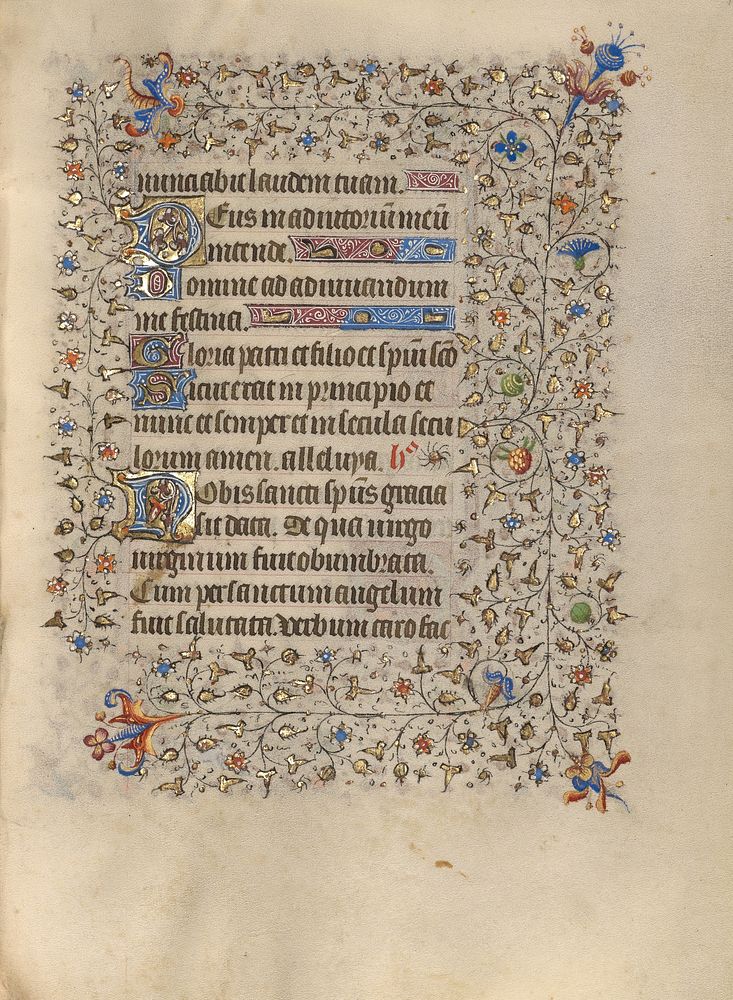 nunciabit laudem tuam.
Deus in adiutoriū meū
intende.
Domine ad adiuuandum
me festina.
Gloria patri et filio et spiui sc̄o
Sicut erat in principio et
nunc et semper et in secula secu
lorum amen. alleluya. hꝰ
Nobis sancti sp̄us gracia
sit data. De qua uirgo
uirginum fuit obumbrata.
Cum per sanctum angelum
fuit salutata. Verbum caro fac